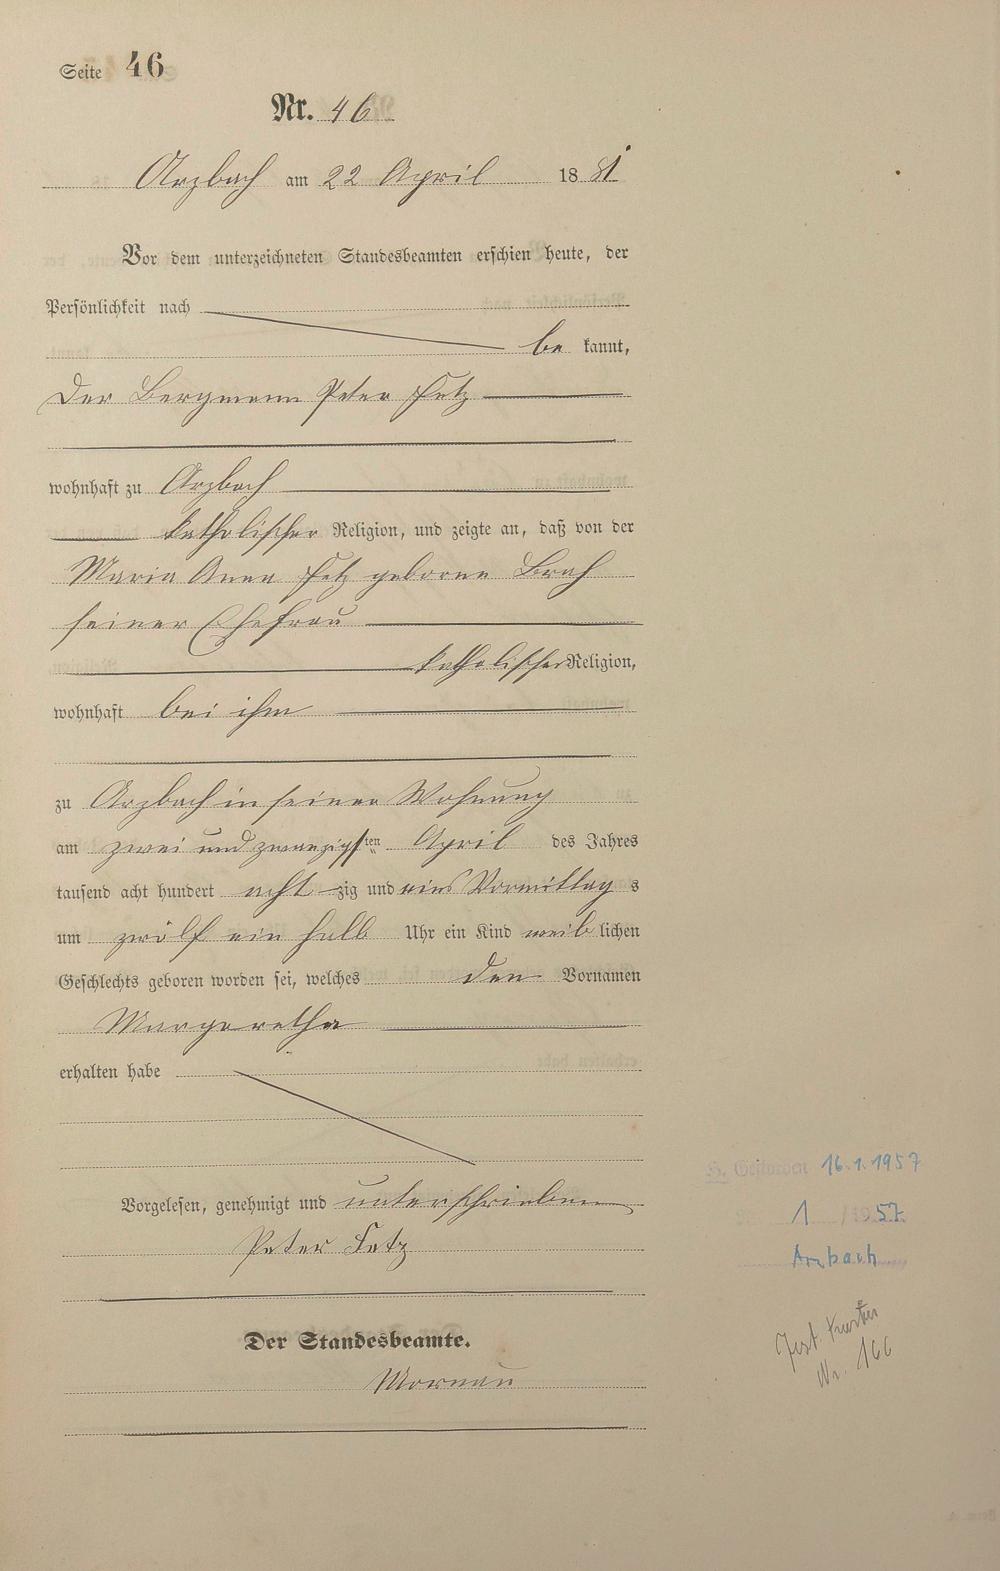 Seite 46
Nr. 46
Arzbach am 22 April 1881
Vor dem unterzeichneten Standesbeamten erschien heute, der
Persönlichkeit nach
be kannt,
der Bergmann Peter Fetz
wohnhaft zu Arzbach
katholischer Religion, und zeigte an, daß von der
Maria Anna Fetz geborne
seiner Ehefrau
katholischer Religion,
wohnhaft bei ihm
zu Arzbach in seiner Wohnung
am zwei und zwanzigsten April des Jahres
tausend acht hundert acht zig und eins Vormittag s
um zwölf ein halb Uhr ein Kind weib lichen
Geschlechts geboren worden sei, welches den Vornamen
Margaretha
erhalten habe
Vorgelesen, genehmigt und unterschrieben
Peter Fetz
Der Standesbeamte.
Mornau
H. Gestorben 16.1.1957
1 / 1957
Arzbach
Nr. 166